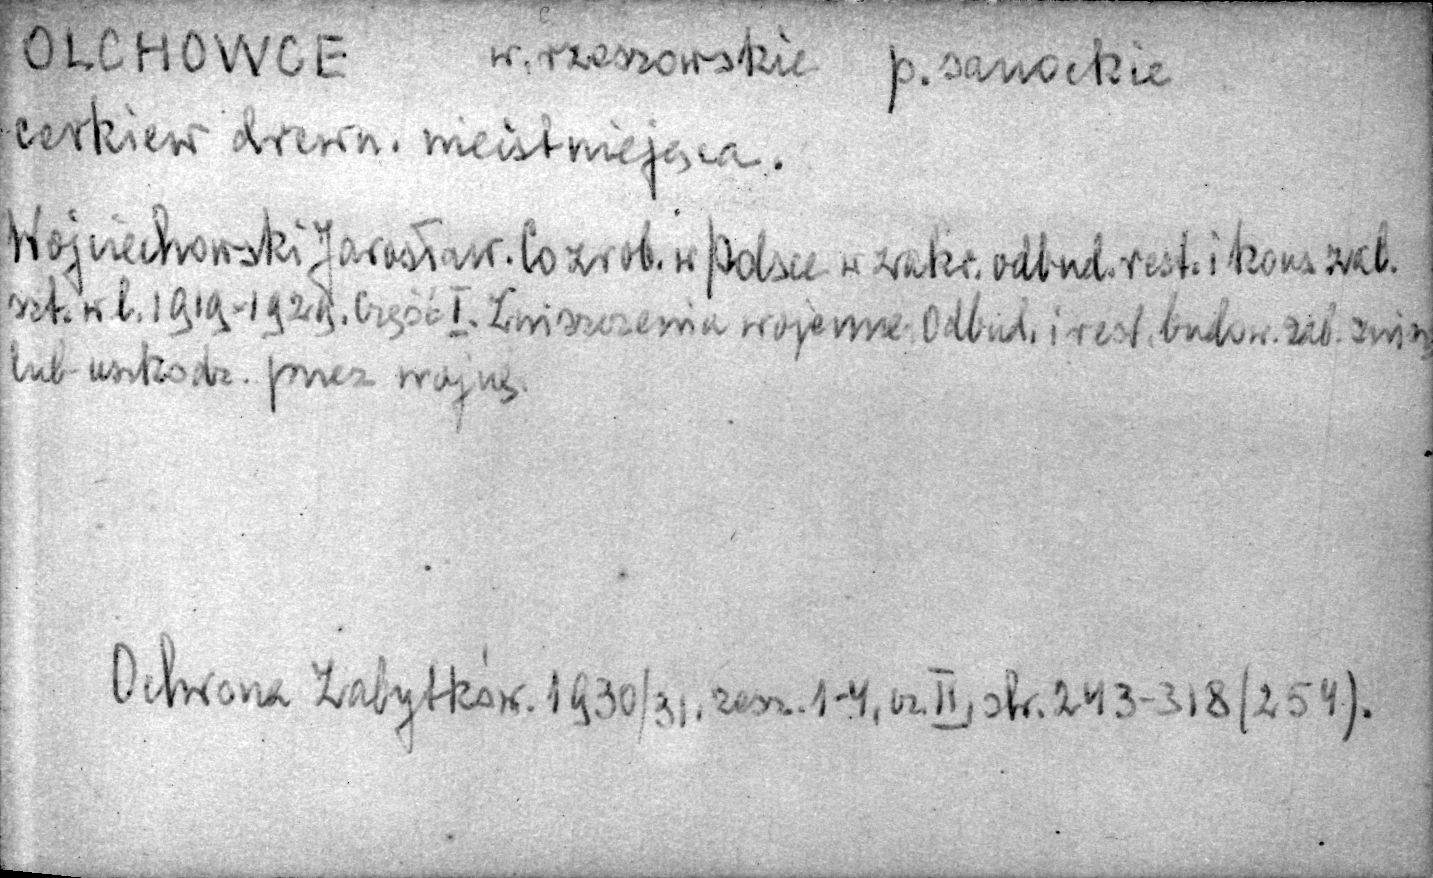 OLCHOWCE w. rzeszowskie p. sanockie
cerkiew drewn. nieistniejąca.
Wojciechowski Jarosław. Co zrob. w Polsce w zakr. odbud. rest. i kons. zab.
szt. w l. 1919-1929. Część I. Zniszczenia wojenne. Odbud. i rest. budow. zab. znisz
lub uszkodz. przez wojnę.
Ochrona Zabytków. 1930/31. zesz. 1-4, cz. II, str. 243-318 (254).